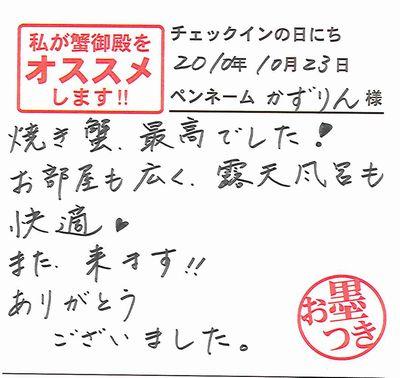 私が蟹御殿を
オススメ
します!!
チェックインの日にち
2010年10月23日
ペンネーム かずりん 様
焼き蟹、最高でした!
お部屋も広く、露天風呂も
快適♥
また、来ます!!
ありがとう
ございました。
お墨つき